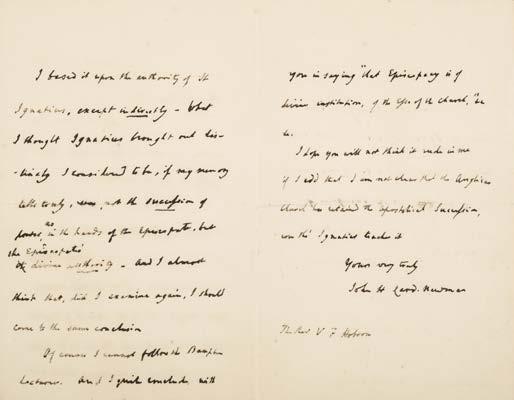 I based it upon the authority of St
Ignatius, except indirectly - What
I thought Ignatius brought out dis-
-tinctly I considered to be, if my memory
tells truly, was, not the succession of
power, as in the hands of the Episcopate, but
the Episcopate's
divine authority - And I almost
think that, did I examine again, I should
come to the same conclusion
Of course I cannot follow the Bampton
Lecturer. And I quite conclude with
you in saying "that Episcopacy is of
divine institution, of the Esse of the Church," &c
&c.
I hope you will not think it rude in me
if I add that I am not clear that the Anglican
Church has retained the apostolical Succession,
even tho' Ignatius teaches it
Yours very truly
John H Card. Newman
The Rev. V F Hobson